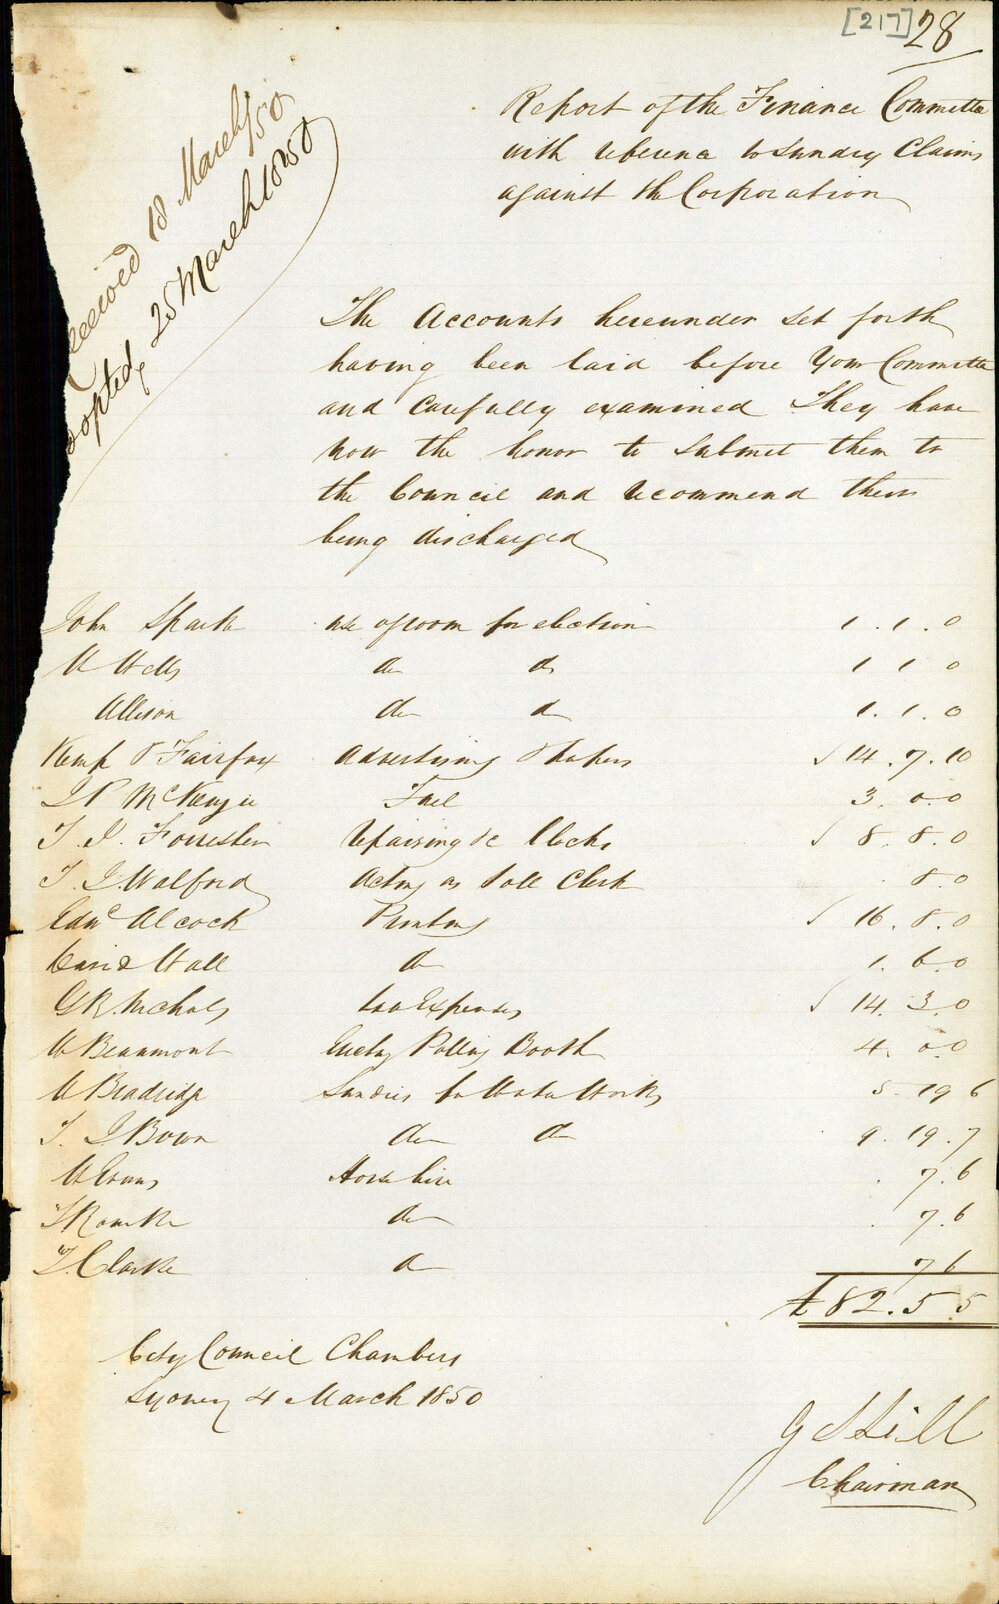 [217] 28
Received 18 March/50
Adopted 25 March 1850
Report of the Finance Committee
with reference to Sundry Claims
against the Corporation
The Accounts hereunder set forth
having been laid before Your Committee
and carefully examined They have
now the honor to submit them to
the Council and recommend their
being discharged
John Spark use of room for election 1 . 1 . 0
W Wells do do 1 1 0
Allison do do 1 . 1 . 0
Kemp & Fairfax Advertising & Papers √ 14 . 7 . 10
McKenzie Fuel 3 . 0 . 0
T. J. Forrester Repairing &c Clocks √ 8 . 8 . 0
T. J. Walford Acting as Poll Clerk . 8 . 0
Edwd Alcock Printing √ 16 . 8 . 0
David Wall do 1 . 6 . 0
G R. Nichols Law Expenses √ 14 . 3 . 0
W Beaumont Erectg Polling Booth 4 . 0 . 0
W Bradridge Sundries for Water Works 5 . 19 6
T. J. Bown do do 9 . 19 . 7
W Evans Horse hire . 7 . 6
do . 7 . 6
T. Clarke do 7 6
£ 82 . 5 5
City Council Chambers
Sydney 4 March 1850
G S Hill
Chairman